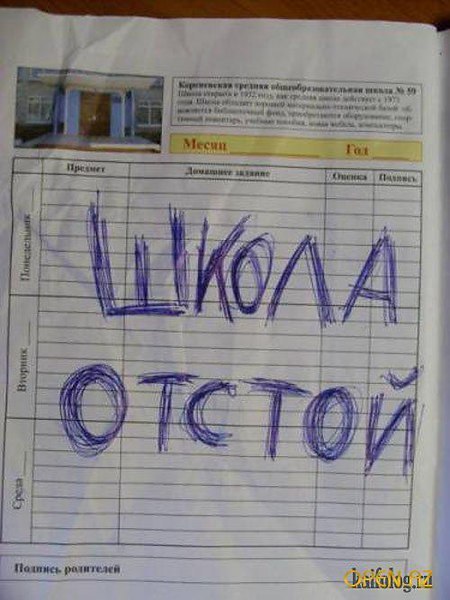 Корсневская средняя общеобразовательная школа № 50
Школа открыта в 1952 году, как средняя школа действует с 1971
года. Школа обладает хорошей материально-технической базой:
фонд, приобретаются оборудование,
инвентарь, учебные пособия, новая мебель, компьютеры.
Месяц Год
Предмет Домашнее задание Оценка Подпись
Понедельник
ШКОЛА
Вторник
ОТСТОЙ
Среда
Подпись родителей